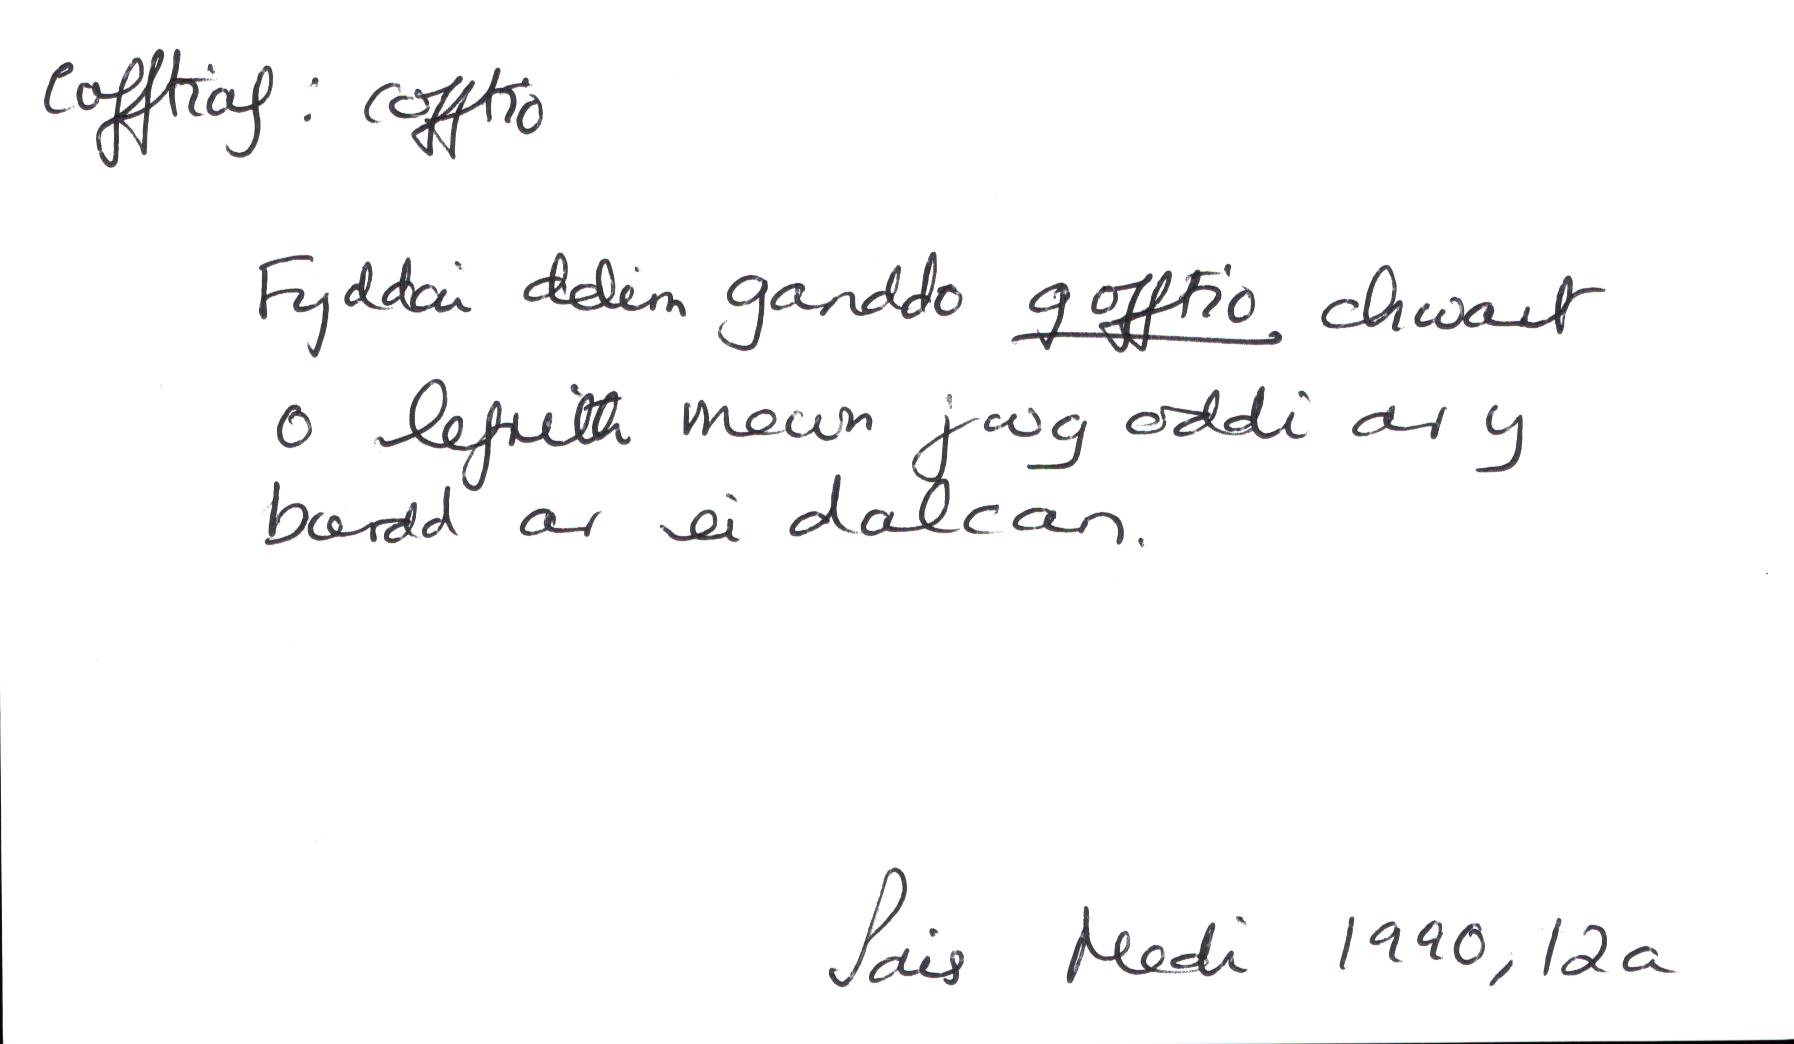 Cofftiaf: cofftio
Fyddai ddim ganddo gofftio chwart
o lefrith mewn jwg oddi ar y
bwrdd ar ei dalcan.
Pais Medi 1990, 12a